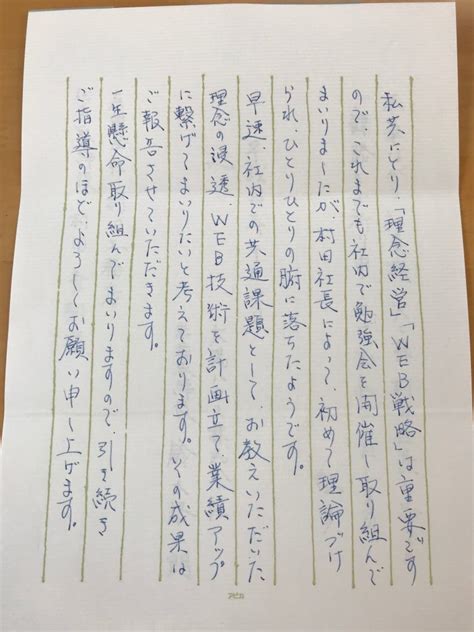 私共にとり、「理念経営」「WEB戦略」は重要です
ので、これまでも社内で勉強会を開催し取り組んで
まいりましたが、村田社長によって、初めて理論づけ
られ、ひとりひとりの腑に落ちたようです。
早速、社内での共通課題として、お教えいただいた
理念の浸透、WEB技術を計画立て、業績アップ
に繋げてまいりたいと考えております。その成果は
ご報告させていただきます。
一生懸命取り組んでまいりますので、引き続き
ご指導のほど、よろしくお願い申し上げます。
アピカ